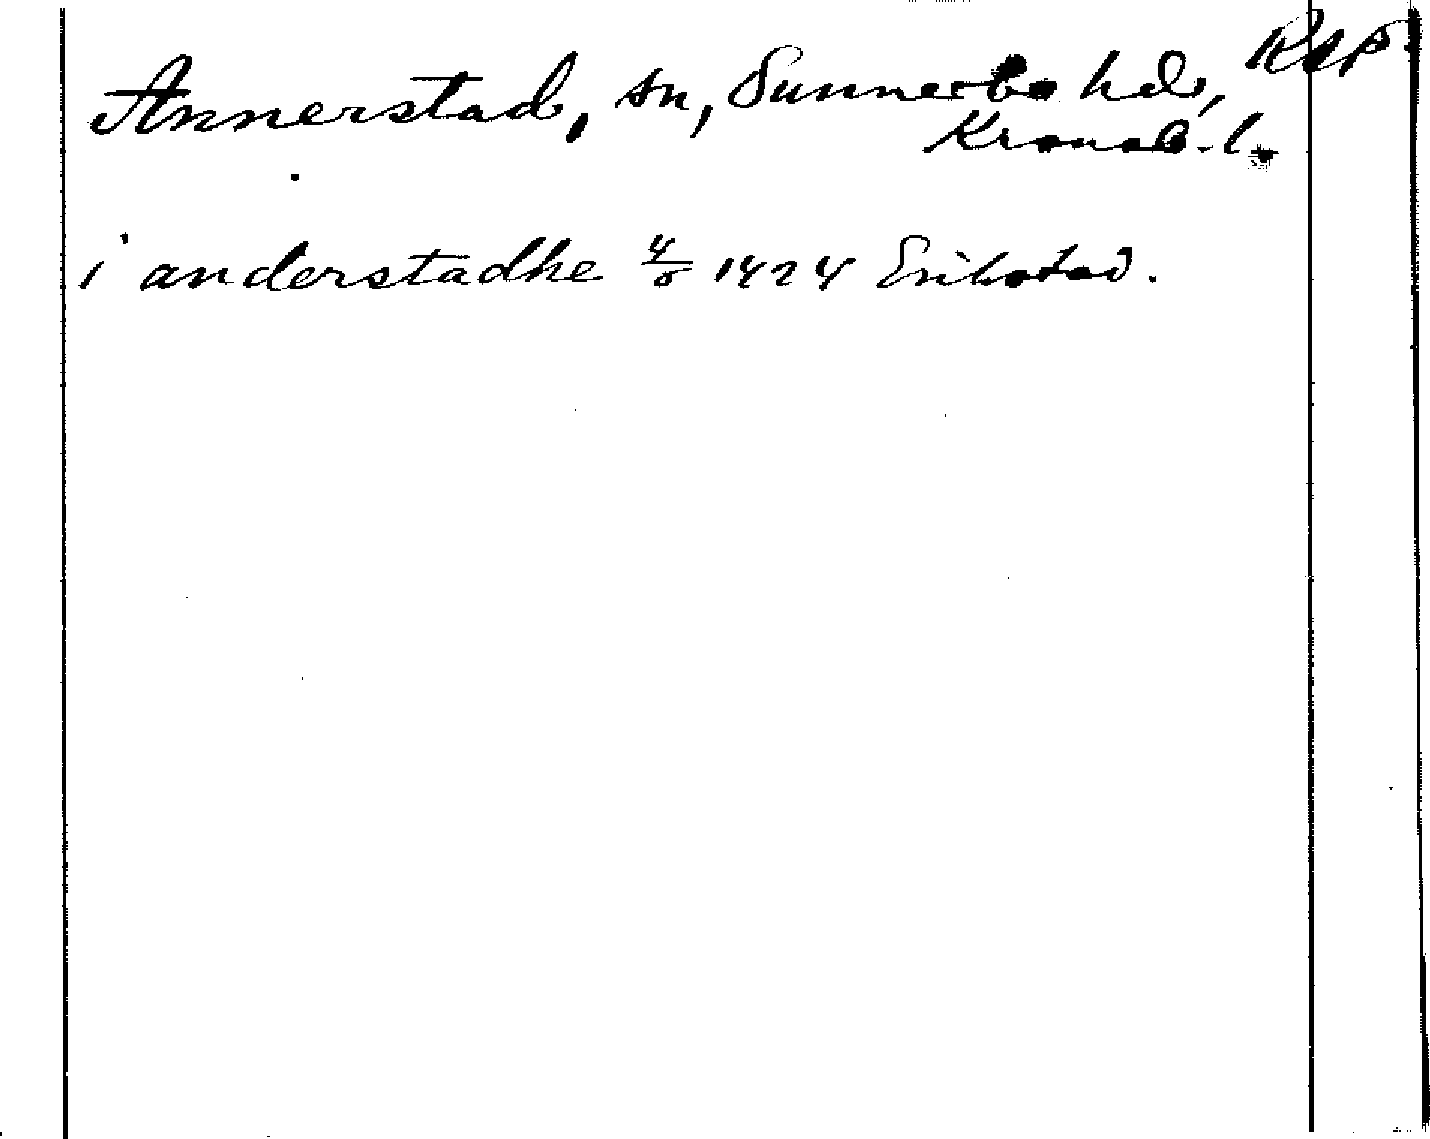 Annerstad, sn, Sunnerbo hd, RAp
Kronob. l.
i anderstadhe 4/8 1424 Erikstad.